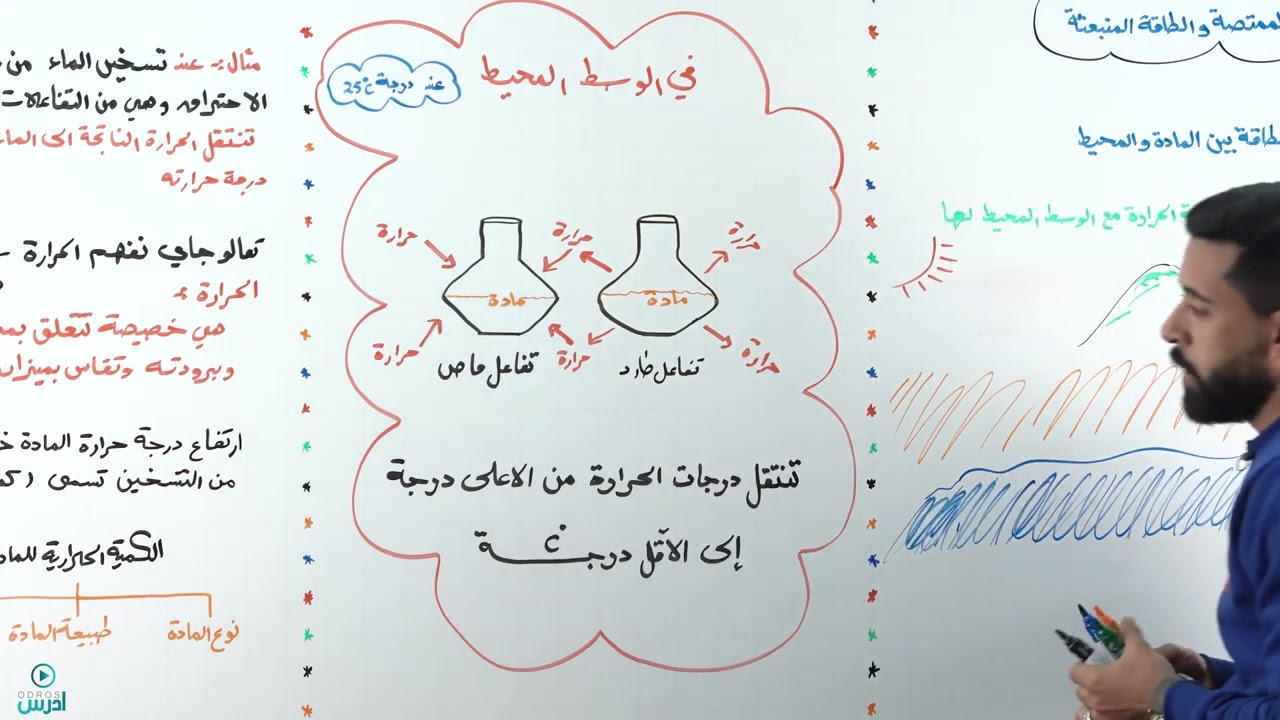 الممتصة والطاقة المنبعثة
بين المادة والمحيط
الحرارة مع الوسط المحيط لها
في الوسط المحيط
عند درجة 25°C
حرارة
حرارة
حرارة
مادة
مادة
حرارة
حرارة
حرارة
تفاعل طارد
تفاعل ماص
تنتقل درجات الحرارة من الاعلى درجة
إلى الأقل درجة
مثال: عند تسخين الماء من
الاحتراق وهي من التفاعلات
تنتقل الحرارة الناتجة الى
درجة حرارته
تعالو جاي نفهم الحرارة
الحرارة:
هي خصيصة تتعلق
وبرودته وتقاس
ارتفاع درجة حرارة المادة
من التسخين تسمى
الكمية الحرارية
نوع المادة
طبيعة المادة
ODROS
ادرس